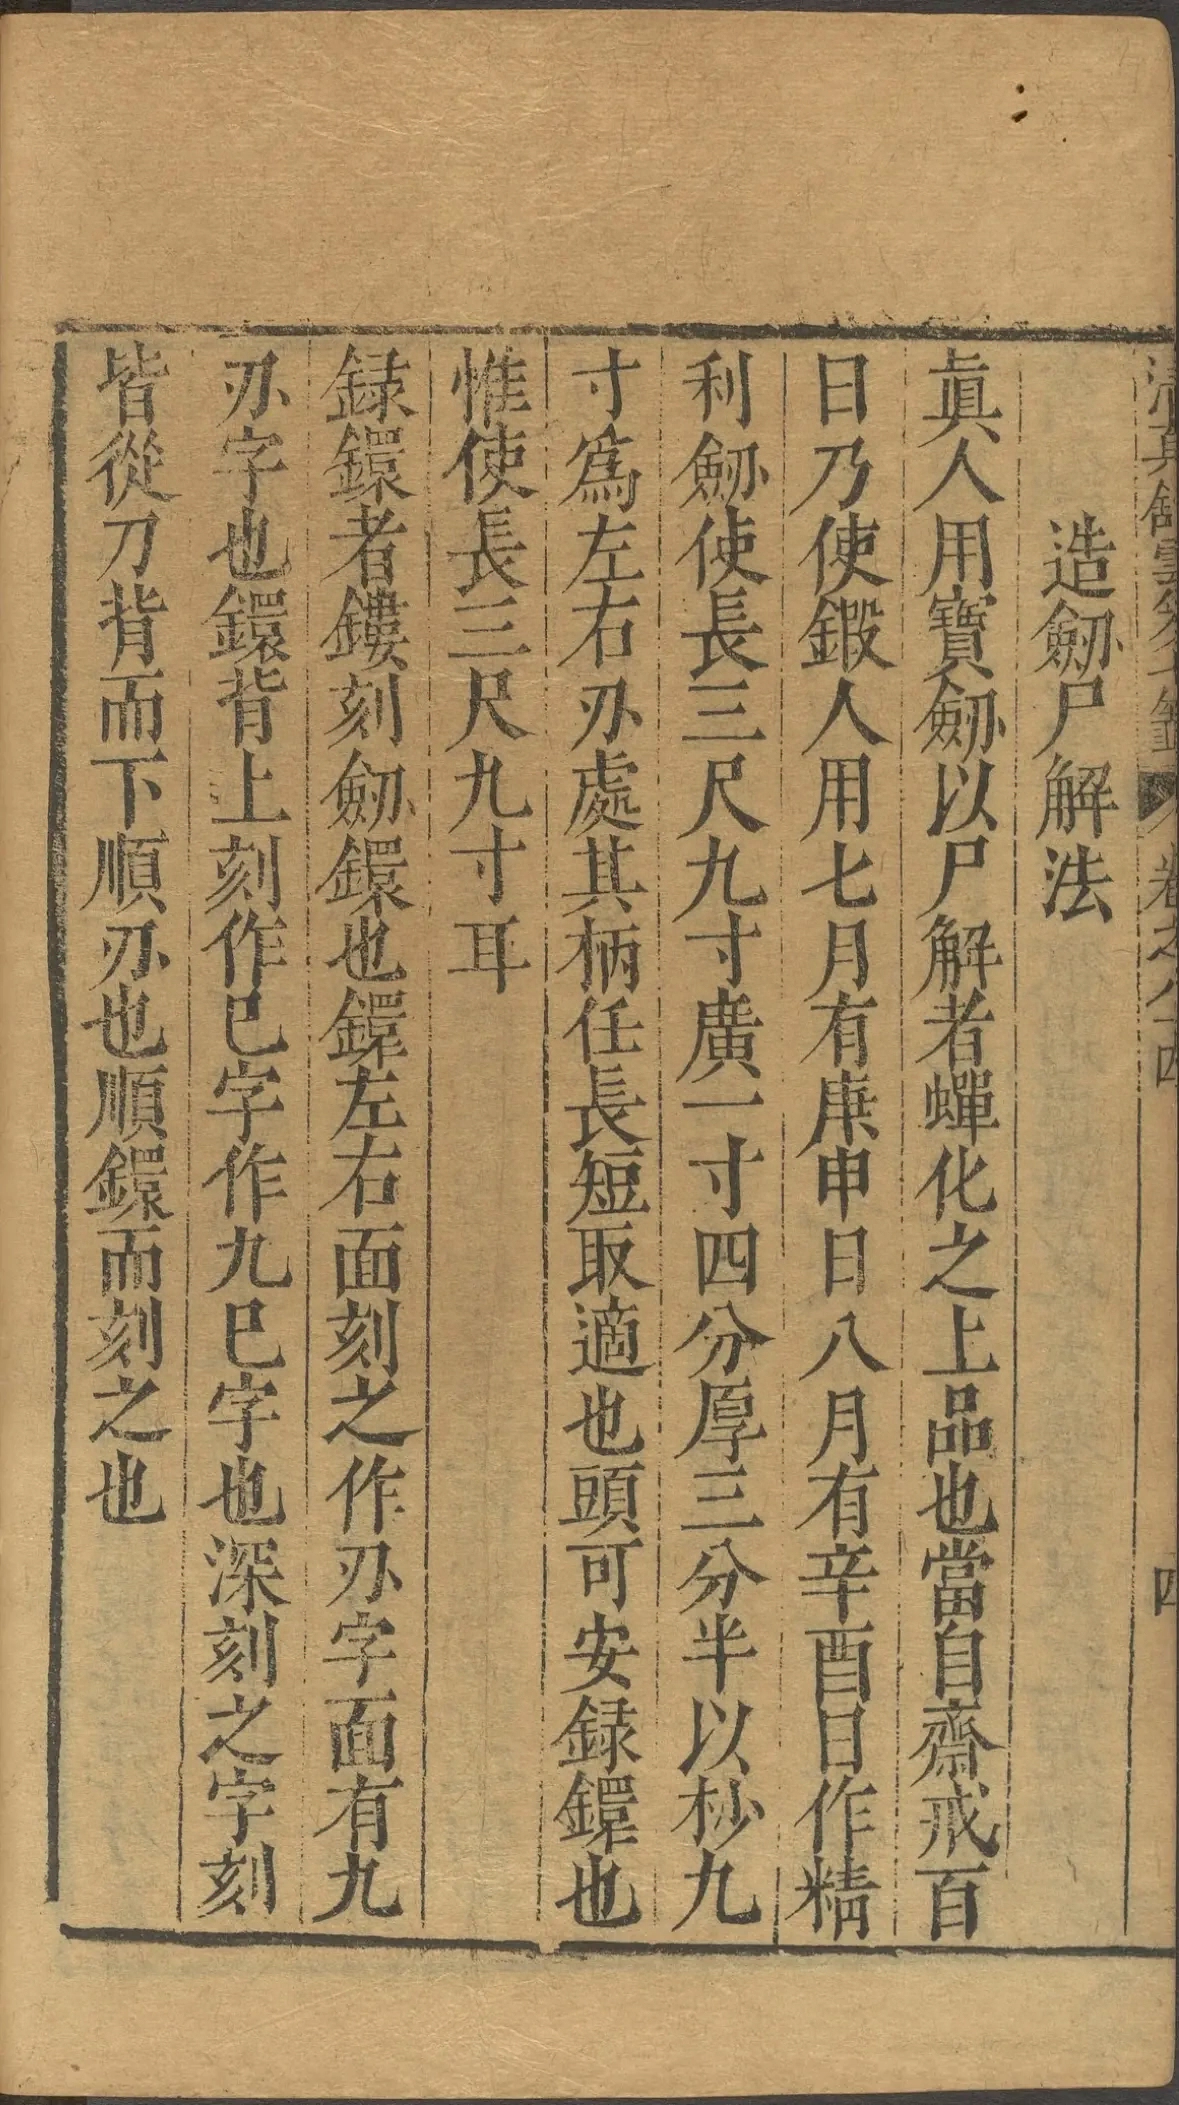 卷之八十四
四
造劒尸解法
眞人用寶劒以尸解者蟬化之上品也當自齋戒百
日乃使鍜人用七月有庚申日八月有辛酉日作精
利劒使長三尺九寸廣一寸四分厚三分半以杪九
寸爲左右刃處其柄任長短取適也頭可安録鐶也
惟使長三尺九寸耳
録鐶者鏤刻劒鐶也鐶左右面刻之作刃字面有九
刃字也鐶背上刻作巳字作九巳字也深刻之字刻
皆從刀背而下順刃也順鐶而刻之也